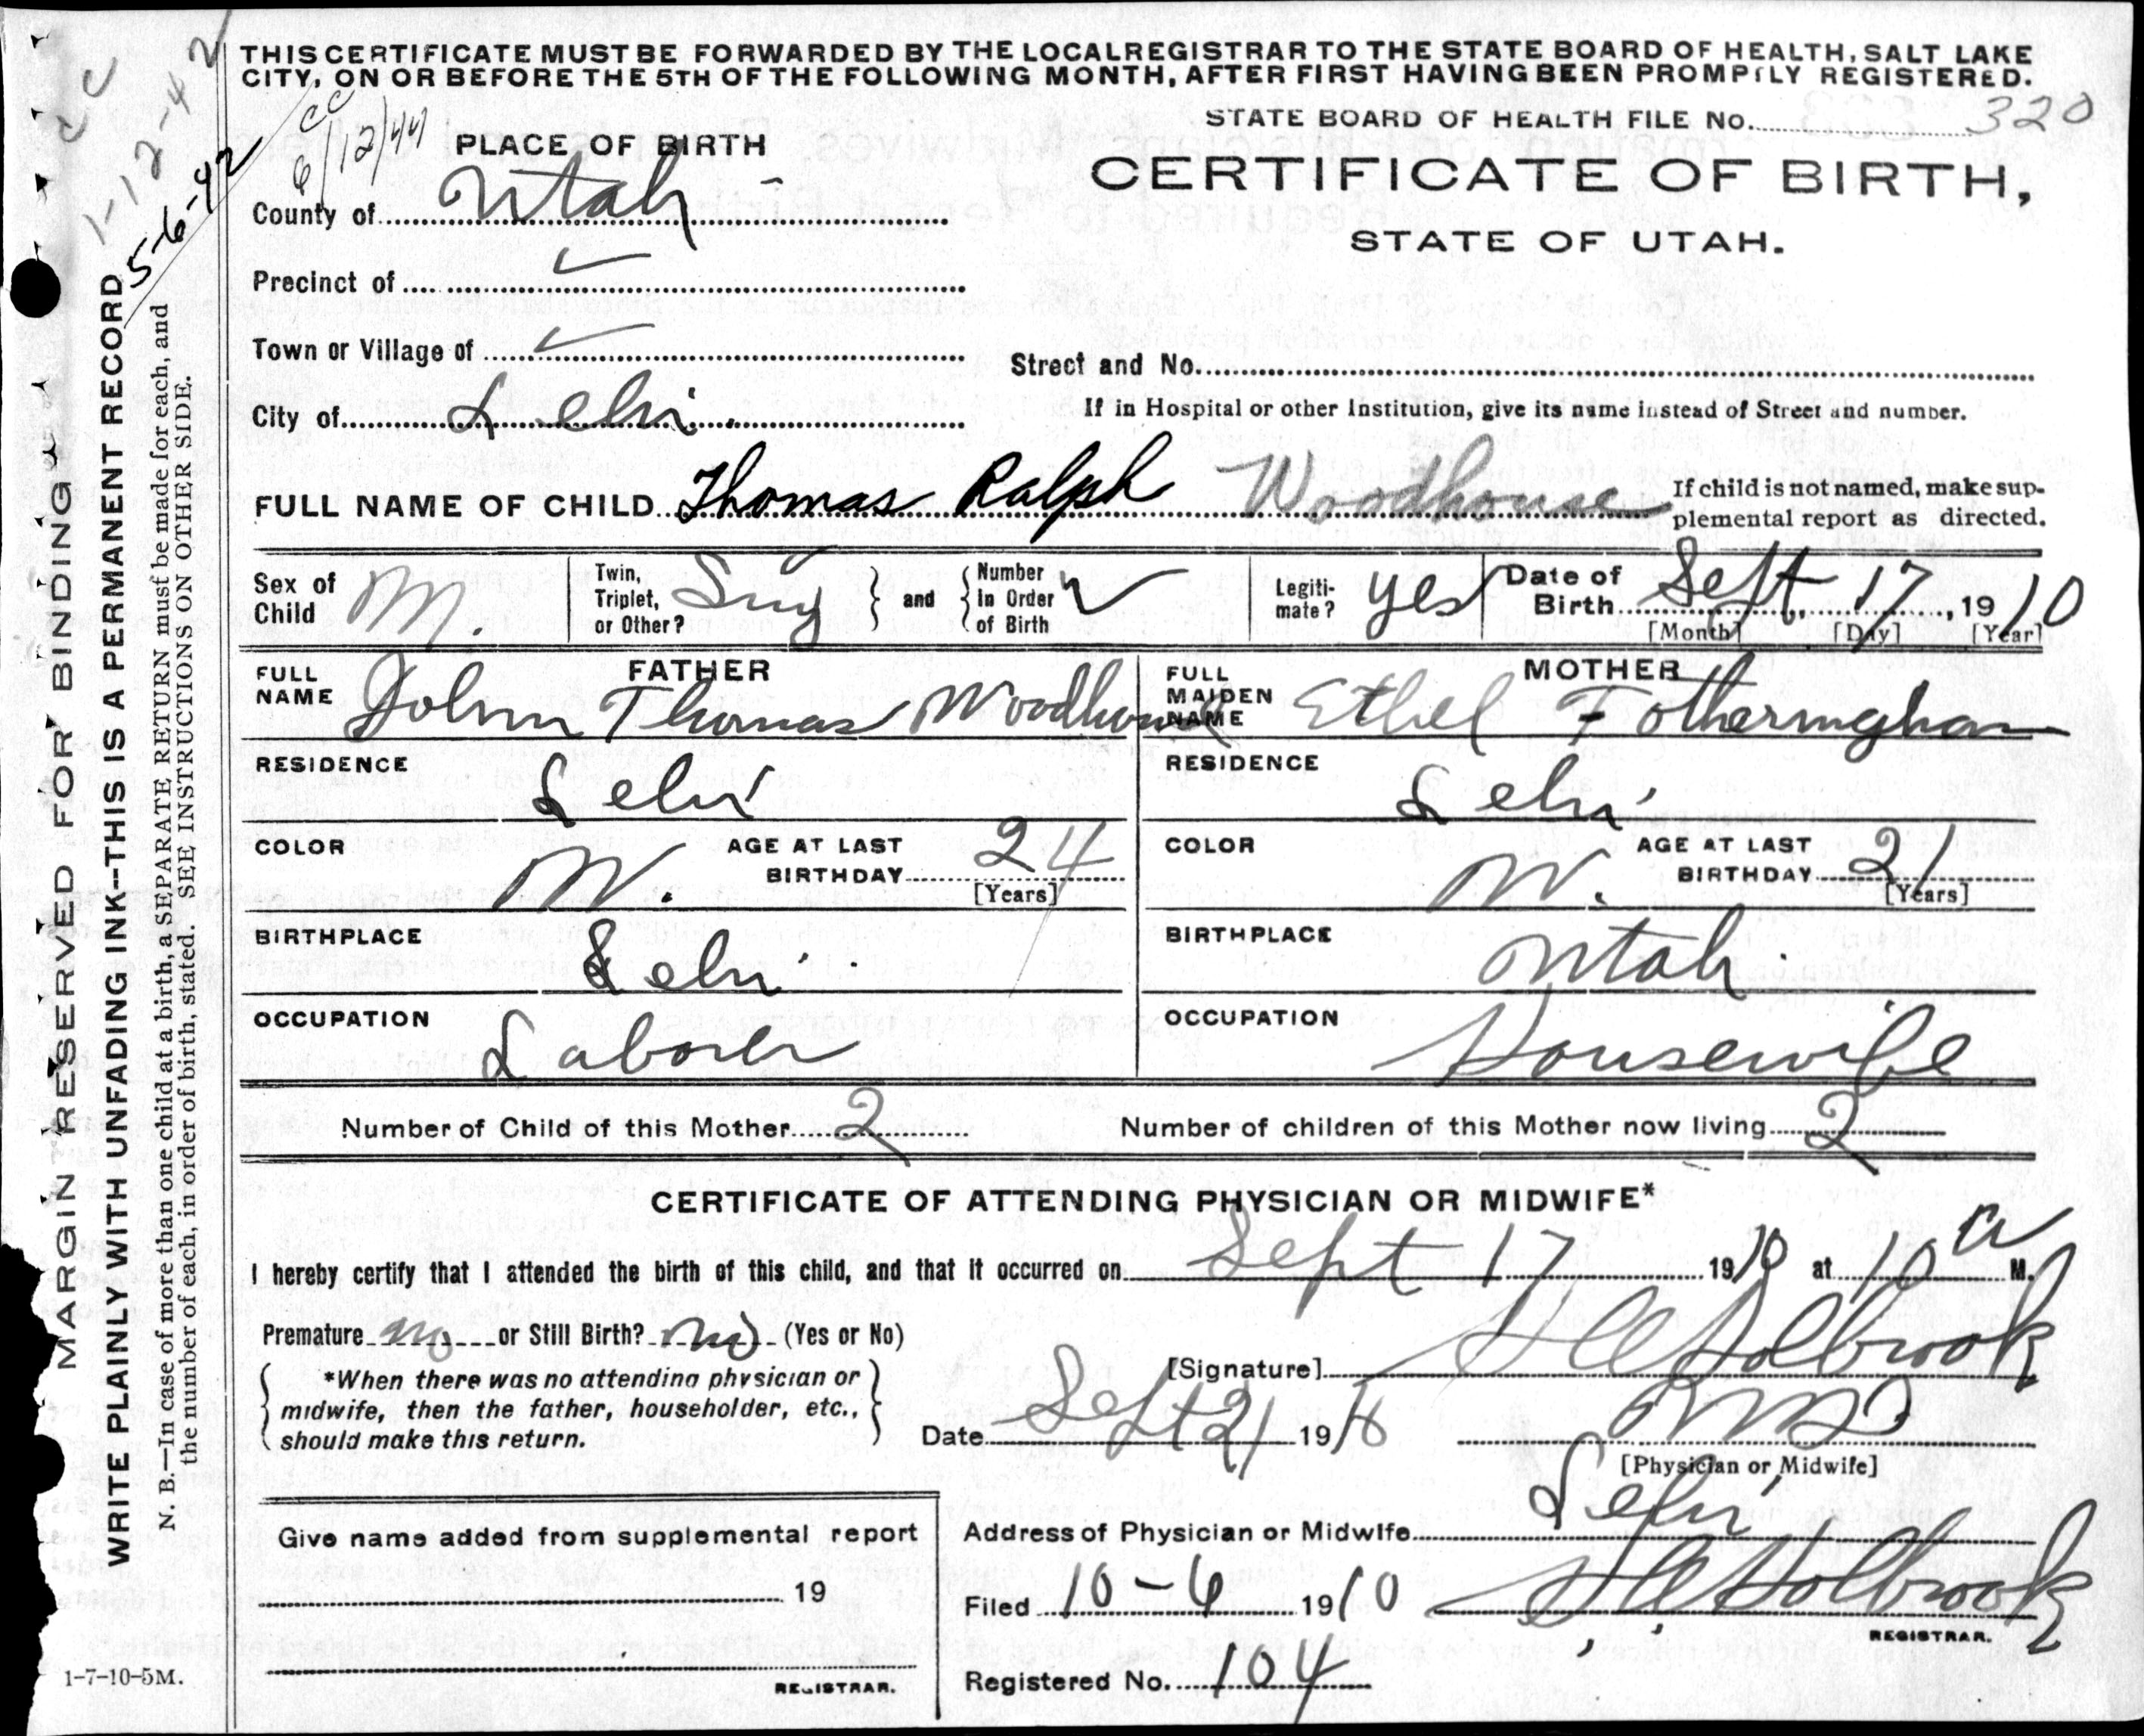 THIS CERTIFICATE MUST BE FORWARDED BY THE LOCAL REGISTRAR TO THE STATE BOARD OF HEALTH, SALT LAKE
CITY, ON OR BEFORE THE 5TH OF THE FOLLOWING MONTH, AFTER FIRST HAVING BEEN PROMPTLY REGISTERED.
STATE BOARD OF HEALTH FILE No. 320
CC
1-12-42
5-6-42
CC
6/12/44
PLACE OF BIRTH
CERTIFICATE OF BIRTH,
STATE OF UTAH.
County of Utah
Precinct of ✓
Town or Village of ✓
Street and No.
City of Lehi
If in Hospital or other Institution, give its name instead of Street and number.
FULL NAME OF CHILD Thomas Ralph Woodhouse
If child is not named, make sup-
plemental report as directed.
Sex of Child M.
Twin, Triplet, or Other? Sing
and
Number in Order of Birth ✓
Legiti-mate? yes
Date of Birth Sept, 17, 1910
[Month] [Day] [Year]
FATHER
FULL NAME John Thomas Woodhouse
MOTHER
FULL MAIDEN NAME Ethel Fotheringham
RESIDENCE Lehi
RESIDENCE Lehi
COLOR W. AGE AT LAST BIRTHDAY 24 [Years]
COLOR W. AGE AT LAST BIRTHDAY 21 [Years]
BIRTHPLACE Lehi
BIRTHPLACE Utah.
OCCUPATION Laborer
OCCUPATION Housewife
Number of Child of this Mother 2
Number of children of this Mother now living 2
CERTIFICATE OF ATTENDING PHYSICIAN OR MIDWIFE*
I hereby certify that I attended the birth of this child, and that it occurred on Sept 17 1910 at 10 a M.
Premature no or Still Birth? no (Yes or No)
[Signature] Holbrook
*When there was no attending physician or
midwife, then the father, householder, etc.,
should make this return.
Date Sept 21 1910
[Physician or Midwife]
Give name added from supplemental report
19
REGISTRAR.
Address of Physician or Midwife Lehi
Filed 10-6 1910 Holbrook
REGISTRAR.
Registered No. 104
1-7-10-5M.
MARGIN RESERVED FOR BINDING
WRITE PLAINLY WITH UNFADING INK--THIS IS A PERMANENT RECORD
N. B.—In case of more than one child at a birth, a SEPARATE RETURN must be made for each, and
the number of each, in order of birth, stated. SEE INSTRUCTIONS ON OTHER SIDE.